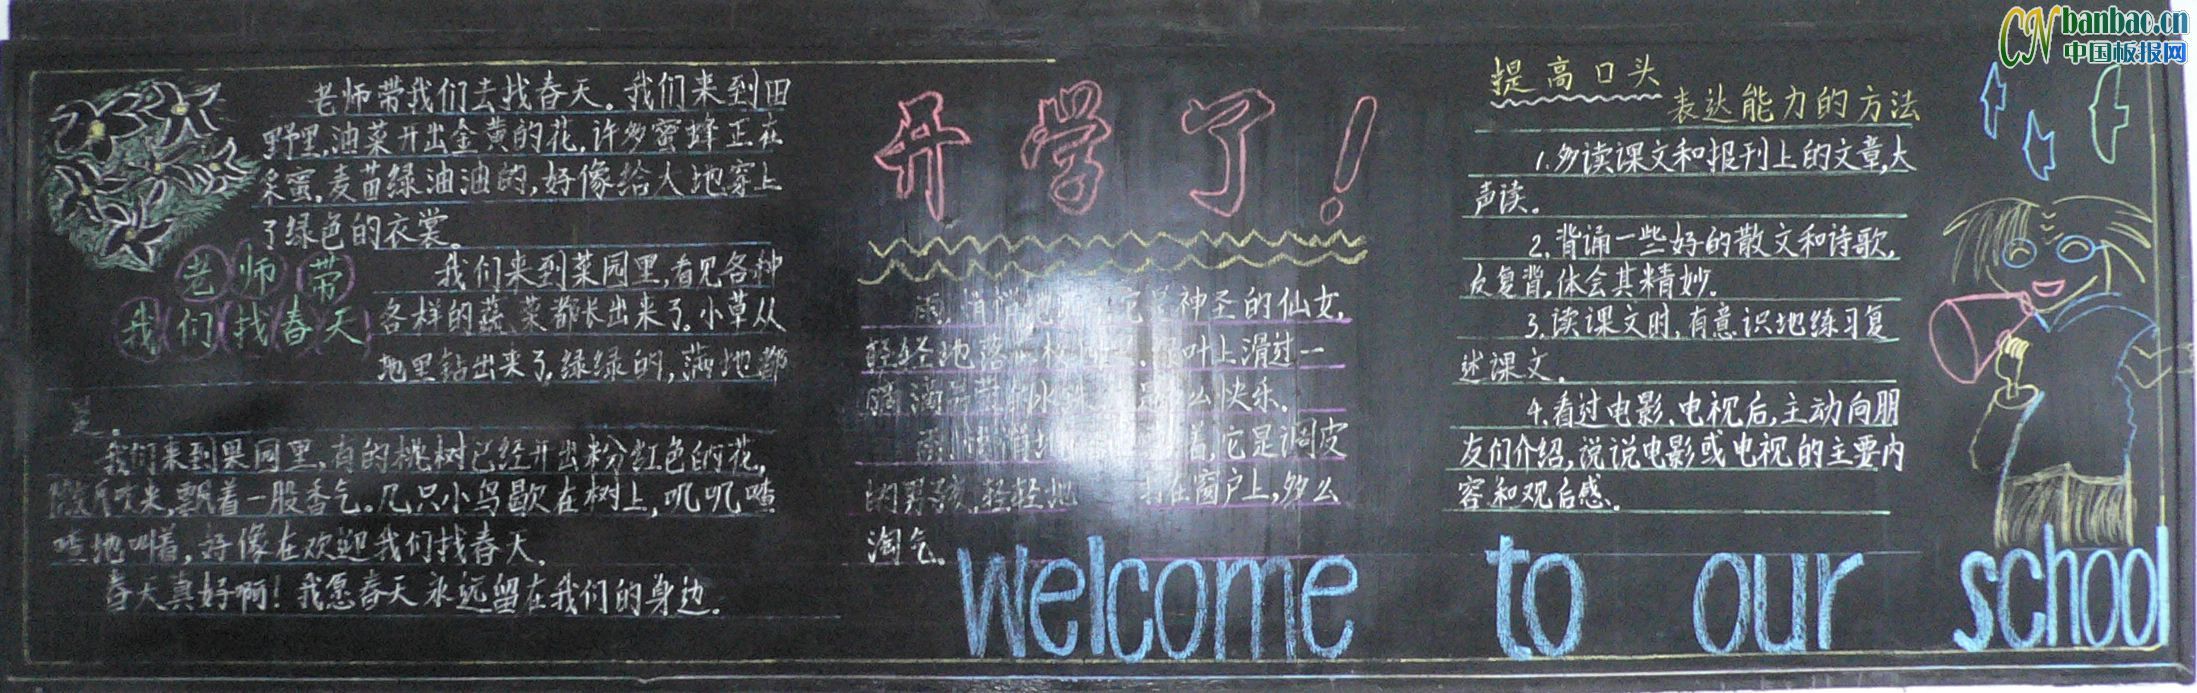 CN banbao.cn
中国板报网
老师带我们去找春天。我们来到田
野里,油菜开出金黄的花,许多蜜蜂正在
采蜜,麦苗绿油油的,好像给大地穿上
了绿色的衣裳。
老师带
我们找春天
我们来到菜园里,看见各种
各样的蔬菜都长出来了。小草从
地里钻出来了,绿绿的,满地都
是。
我们来到果园里,有的桃树已经开出粉红色的花,
微风吹来,飘着一股香气。几只小鸟歇在树上,叽叽喳
喳地叫着,好像在欢迎我们找春天。
春天真好啊!我愿春天永远留在我们的身边。
开学了!
雨,悄悄地 它是神圣的仙女,
轻轻地落 叶上滑过一
滴滴 水 么快乐。
雨,悄悄地 着,它是调皮
的男孩,轻轻地 打在窗户上,多么
淘气。
提高口头
表达能力的方法
1.多读课文和报刊上的文章,大
声读。
2.背诵一些好的散文和诗歌,
反复背,体会其精妙。
3.读课文时,有意识地练习复
述课文。
4.看过电影、电视后,主动向朋
友们介绍,说说电影或电视的主要内
容和观后感。
welcome to our school